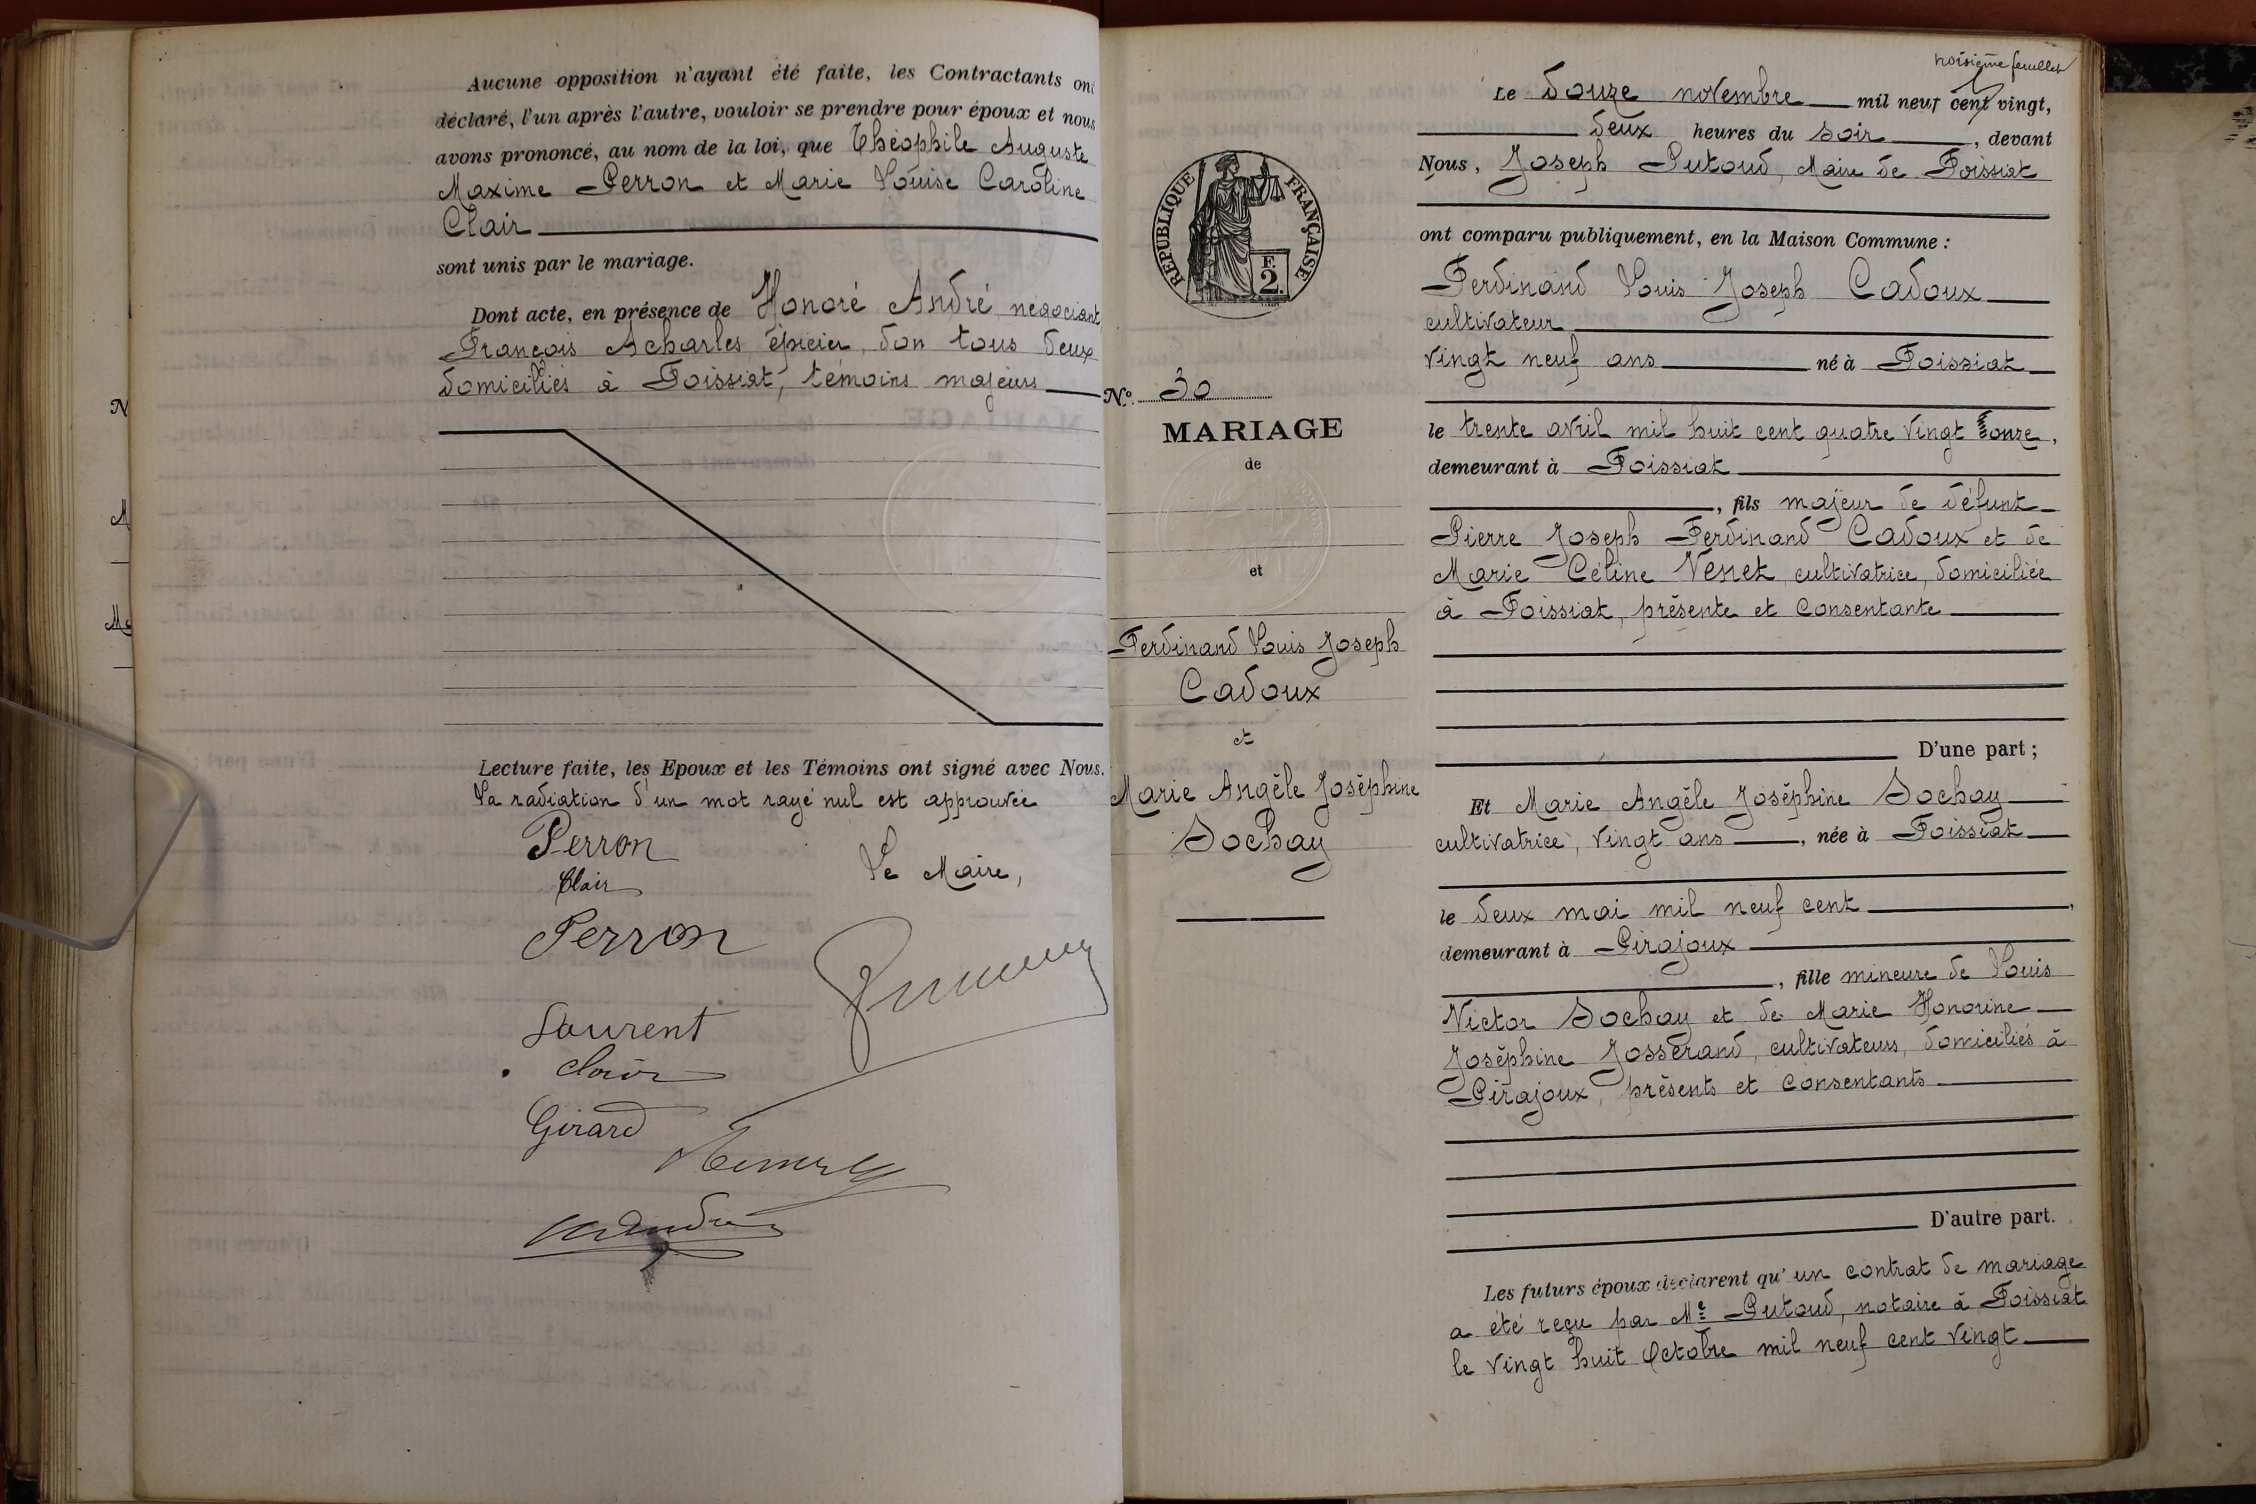 Aucune opposition n'ayant été faite, les Contractants ont
déclaré, l'un après l'autre, vouloir se prendre pour époux et nous
avons prononcé, au nom de la loi, que Théophile Auguste
Maxime Perron et Marie Louise Caroline
Clair
sont unis par le mariage.
Dont acte, en présence de Honoré André négociant
François Acharles épicier, don tous deux
domiciliés à Foissiat, témoins majeurs
Lecture faite, les Epoux et les Témoins ont signé avec Nous.
La radiation d'un mot rayé nul est approuvée
Perron
Clair
Le Maire,
Perron
Laurent
Clair
Girard
N
M
Ma
RÉPUBLIQUE FRANÇAISE
F.
2.
No. 30
MARIAGE
de
et
Ferdinand Louis Joseph
Cadoux
et
Marie Angèle Joséphine
Sochay
troisième feuillet
Le douze novembre mil neuf cent vingt,
deux heures du soir, devant
Nous, Joseph Putoud, Maire de Foissiat
ont comparu publiquement, en la Maison Commune :
Ferdinand Louis Joseph Cadoux
cultivateur
vingt neuf ans né à Foissiat
le trente avril mil huit cent quatre vingt onze,
demeurant à Foissiat
, fils majeur de défunt
Pierre Joseph Ferdinand Cadoux et de
Marie Céline Venet, cultivatrice, domiciliée
à Foissiat, présente et consentante
D'une part ;
Et Marie Angèle Joséphine Sochay
cultivatrice, vingt ans, née à Foissiat
le deux mai mil neuf cent,
demeurant à Pirajoux
, fille mineure de Louis
Victor Sochay et de Marie Honorine
Joséphine Josserand, cultivateurs, domiciliés à
Pirajoux, présents et consentants
D'autre part.
Les futurs époux déclarent qu'un contrat de mariage
a été reçu par Me Putoud, notaire à Foissiat
le vingt huit Octobre mil neuf cent vingt